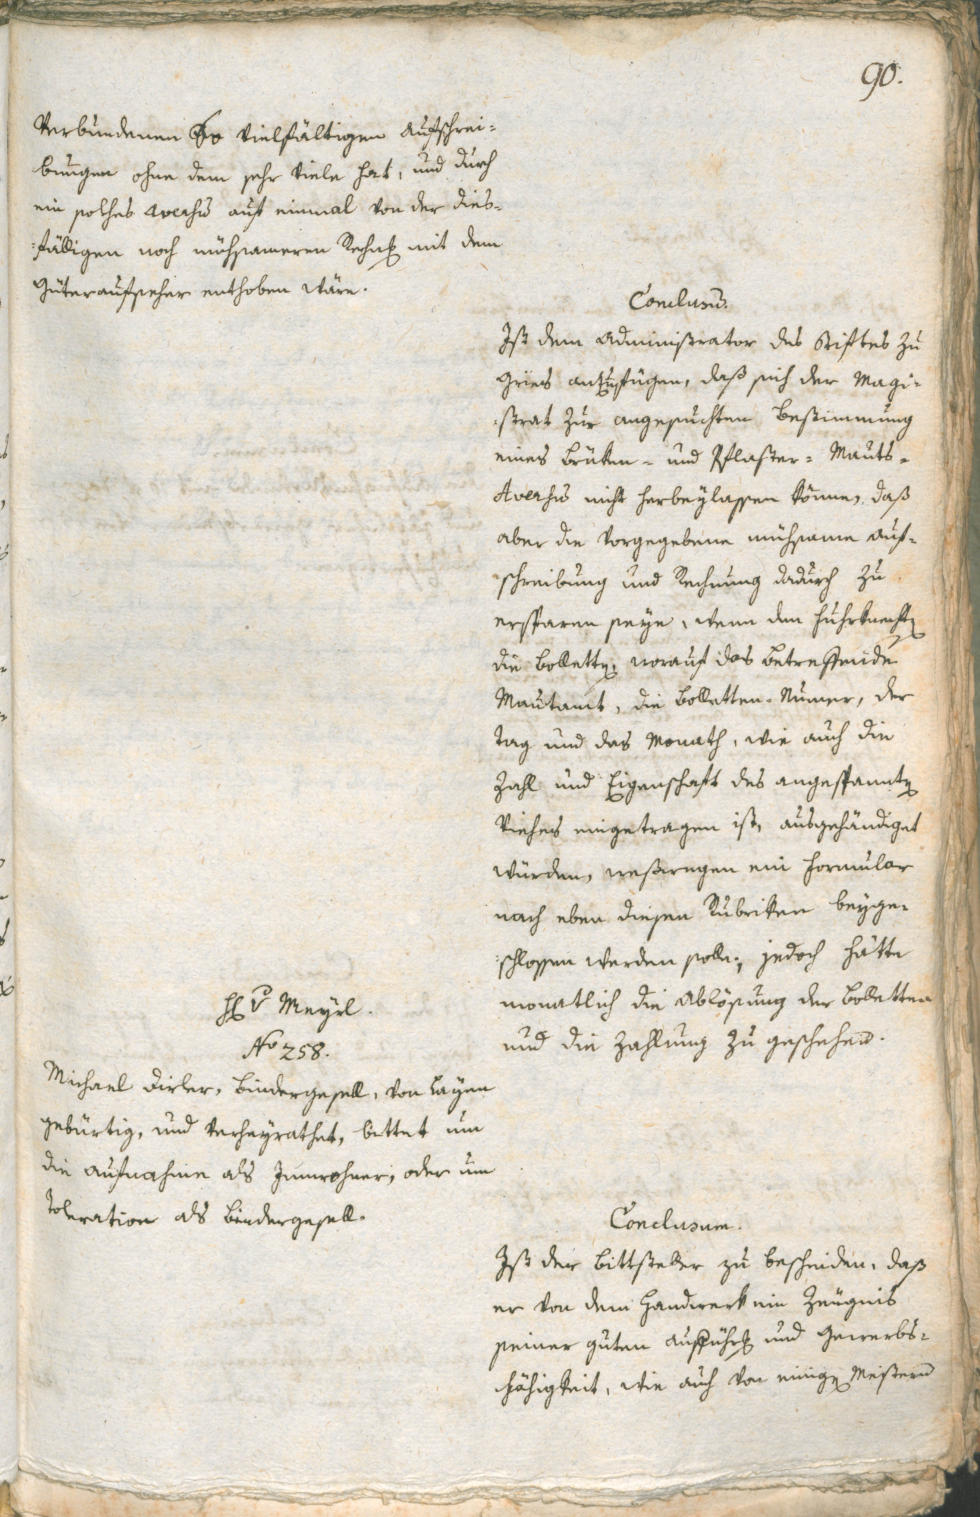 90.
Verbundenen so vielfältigen Aufschrei-
bungen ohne dem sehr viele hat, und durch
ein solches Aversus auf einmal von der dies-
fälligen noch mühsameren Rechng mit dem
Güteraufseher enthoben wäre.
Conclusū.
Ist dem Administrator des Stiftes zu
Gries anzufügen, daß sich der Magi-
strat zur angesuchten Bestimmung
eines Brüken- und Pflaster- Mauts-
Aversus nicht herbeylassen könne, daß
aber die vorgegebene mühsame Auf-
schreibung und Rechnung dadurch zu
ersparen seye, wenn den Fuhrknechtn
die Bolletn, worauf das betreffende
Mautamt, die Bolletten-Numer, der
Tag und das Monath, wie auch die
Zahl und Eigenschaft des angespanntn
Viehes eingetragen ist, ausgehändiget
würden, weßwegen ein Formular
nach eben diesen Rubriken beyge-
schlossen werden solle; jedoch hätte
monatlich die Ablösung der Bolletten
und die Zahlung zu geschehen.
H v Meyrl.
No 258.
Michael Dirler, Bindergesell, von Layen
gebürtig, und verheyrathet, bittet um
die Aufnahme als Innwohner, oder um
Toleration als Bindergesell.
Conclusum.
Ist der Bittsteller zu bescheiden, daß
er von dem Handwerk ein Zeugnis
seiner guten Aufführg und Gewerbs-
fähigkeit, wie auch von einign Meistern